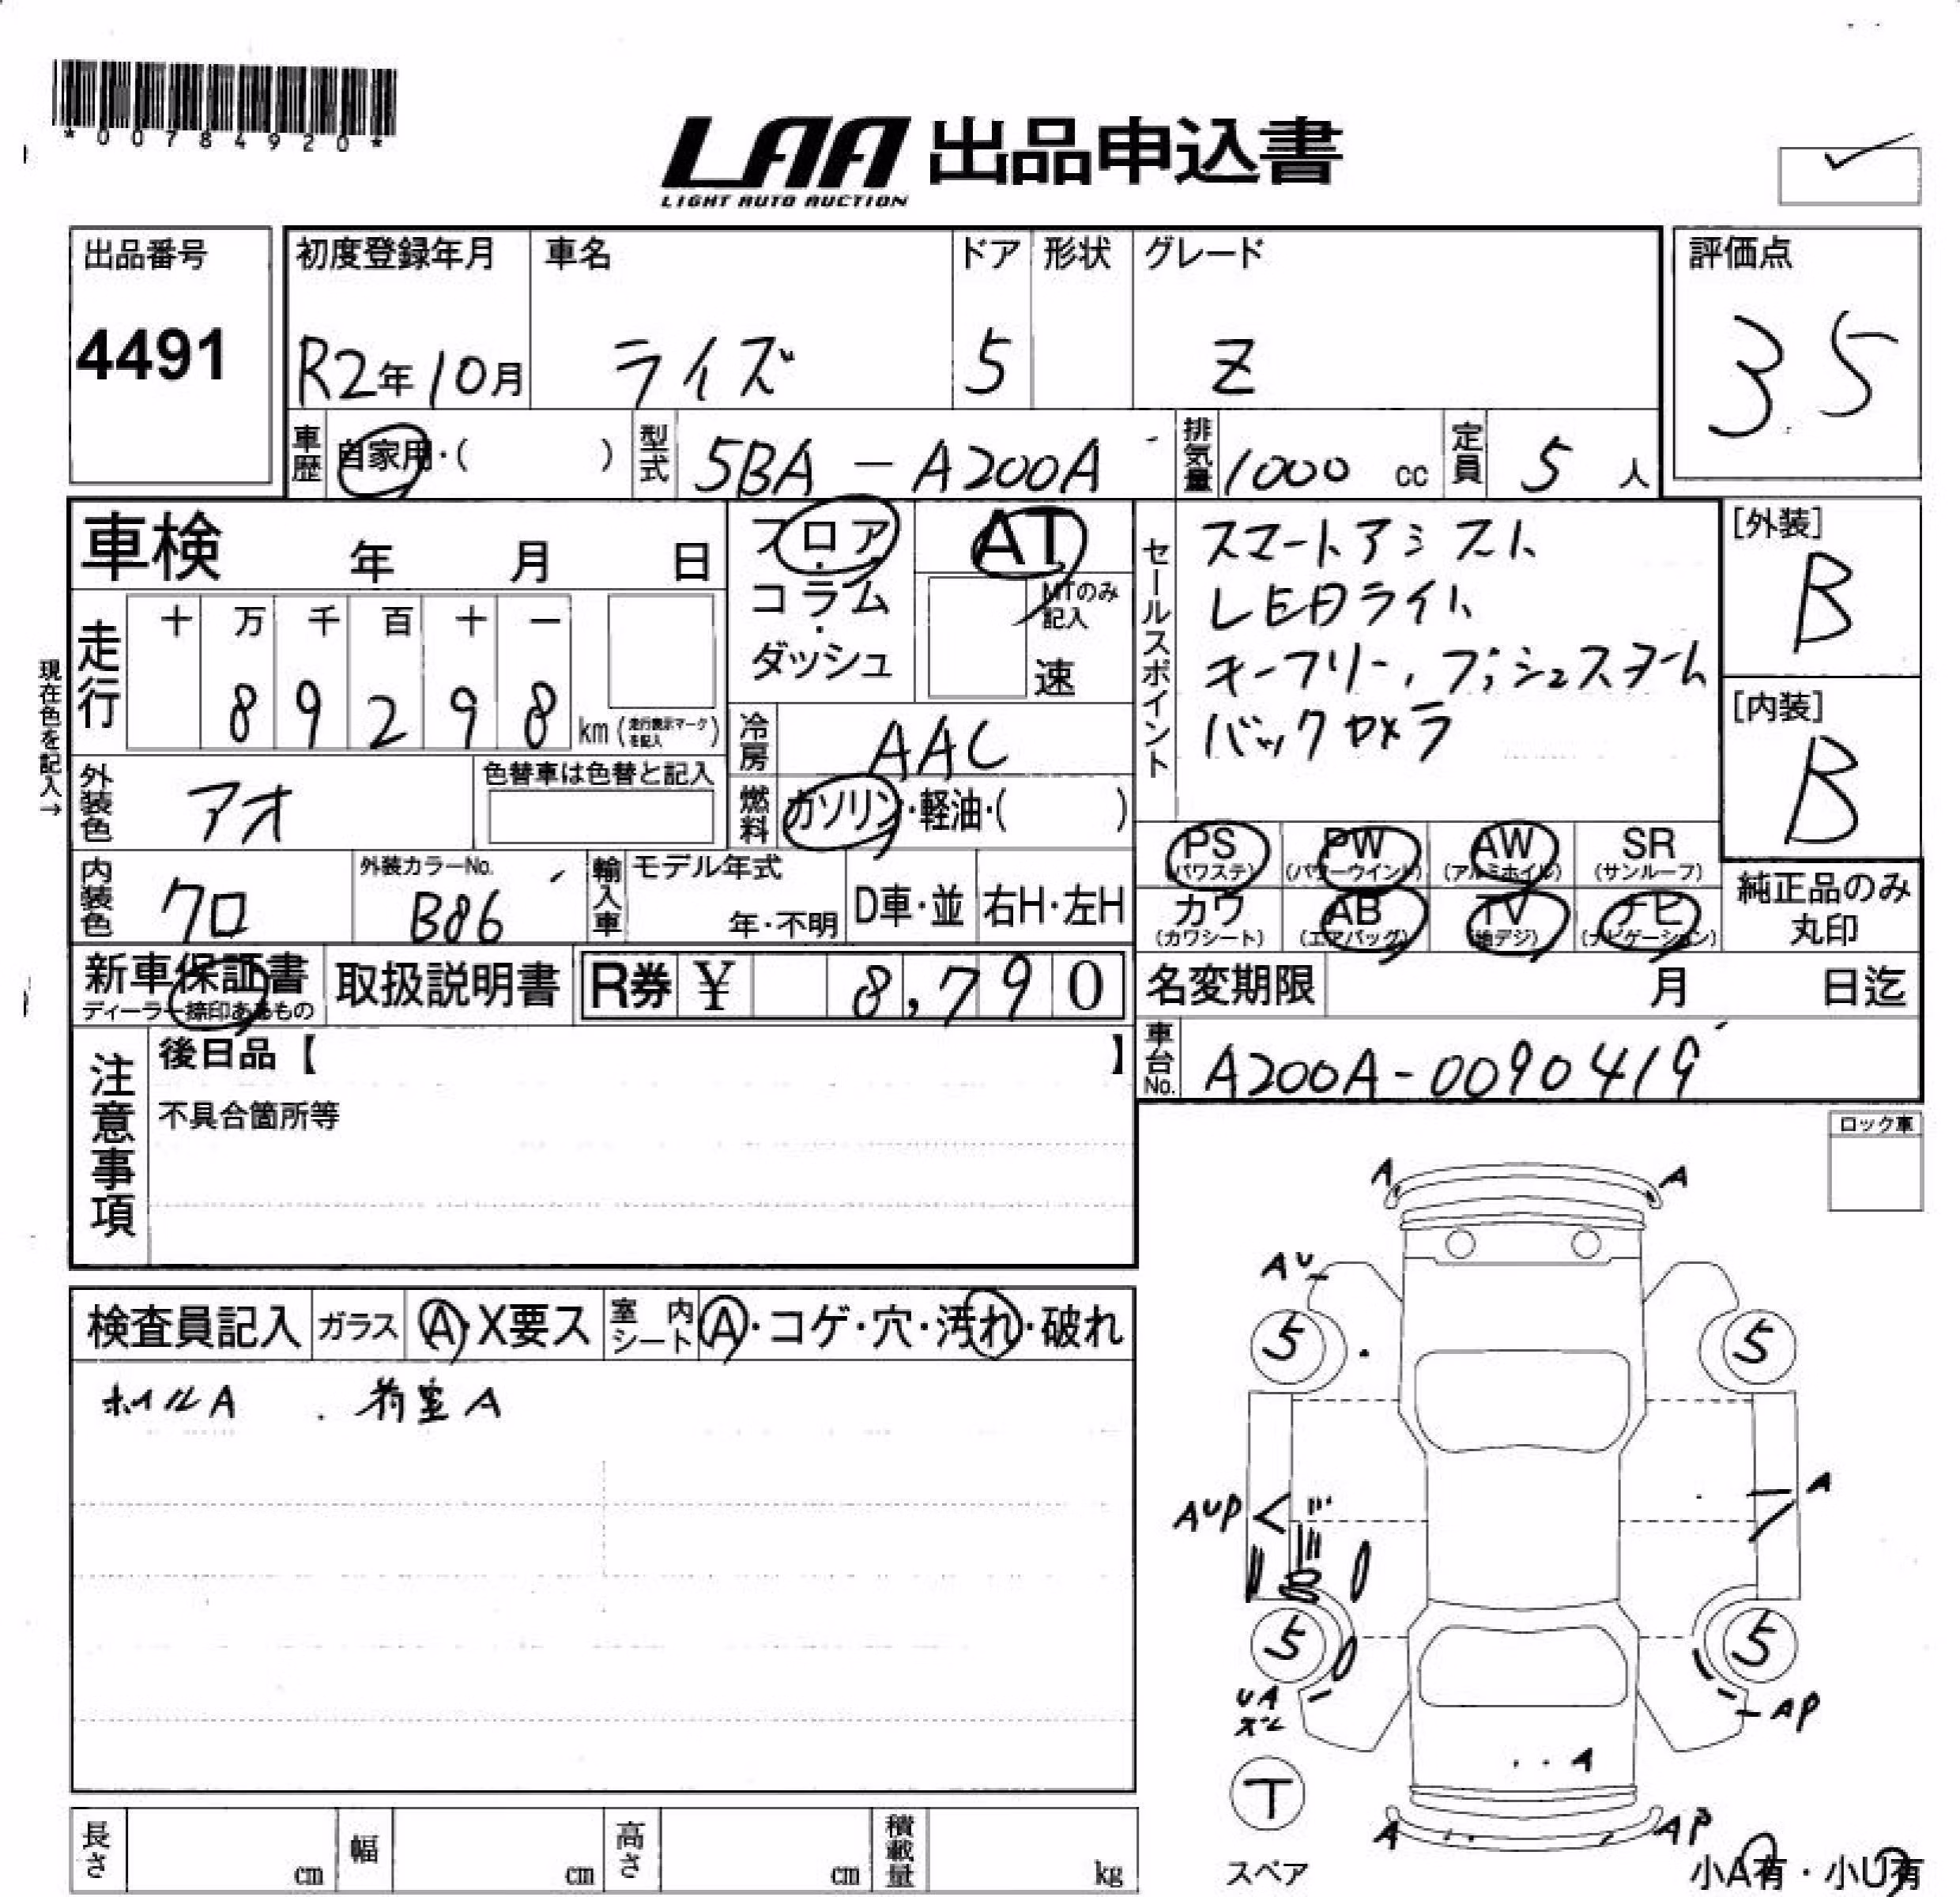 *00784920*
LAA 出品申込書
LIGHT AUTO AUCTION
出品番号
4491
初度登録年月
R2年10月
車名
ライズ
ドア
5
形状
グレード
Z
評価点
3.5
車歴 自家用・( )
型式 5BA-A200A
排気量 1000 cc
定員 5 人
車検 年 月 日
走行
十 万 千 百 十 一
8 9 2 9 8 km (走行表示マークを記入)
現在色を記入→
外装色 アオ
色替車は色替と記入
内装色 クロ
外装カラーNo.
B86
フロア・コラム・ダッシュ
AT
MTのみ記入
速
冷房 AAC
燃料 ガソリン・軽油・( )
輸入車 モデル年式
年・不明
D車・並 右H・左H
セールスポイント
スマートアシスト
LEDライト
キーフリー,プッシュスタート
バックカメラ
[外装]
B
[内装]
B
PS (パワステ) PW (パワーウインド) AW (アルミホイル) SR (サンルーフ)
カワ (カワシート) AB (エアバッグ) TV (地デジ) ナビ (ナビゲーション)
純正品のみ丸印
新車保証書
ディーラー捺印あるもの
取扱説明書
R券 ¥ 8,790
名変期限 月 日迄
車台No. A200A-0090419
注意事項
後日品【 】
不具合箇所等
ロック車
検査員記入 ガラス A・X要ス 室内シート A・コゲ・穴・汚れ・破れ
ホイルA . 荷室A
A A
AU
5 5
AUP A
5 5
UA
AP
A
T
スペア
A AP
小A有・小U有
長さ cm 幅 cm 高さ cm 積載量 kg